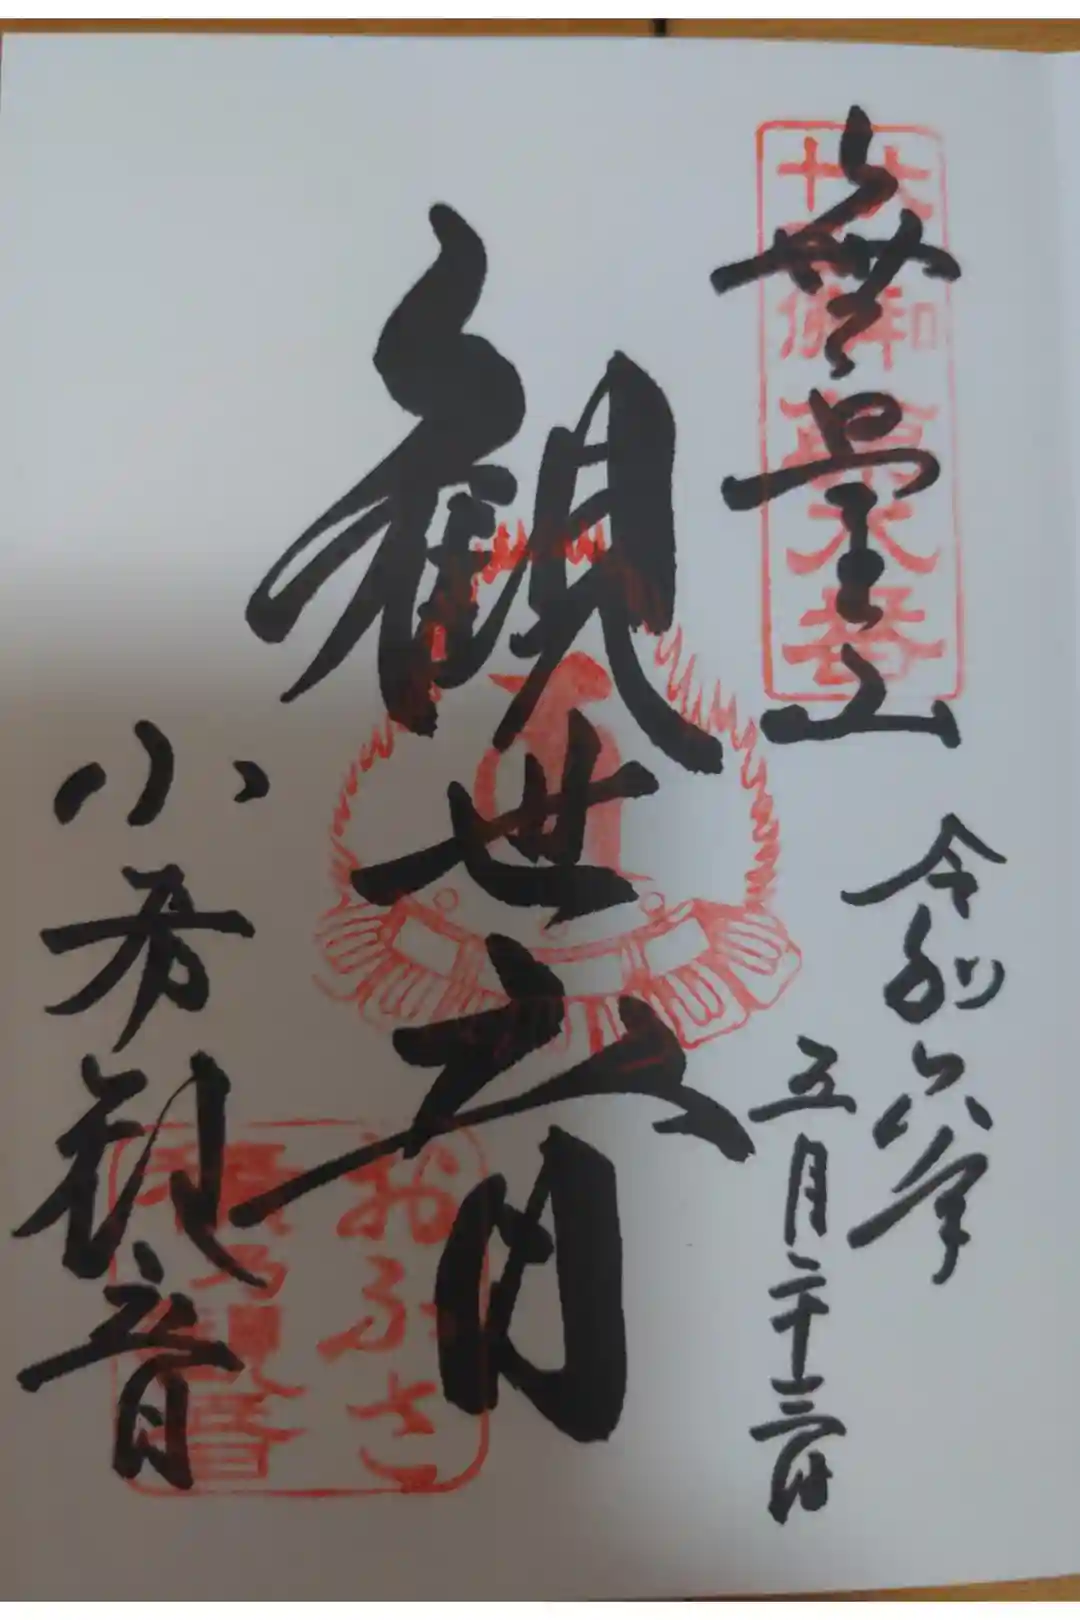 大和
十三佛
第八番
無量山
令和六年
五月二十三日
観世音
小房観音
おふさ
観音